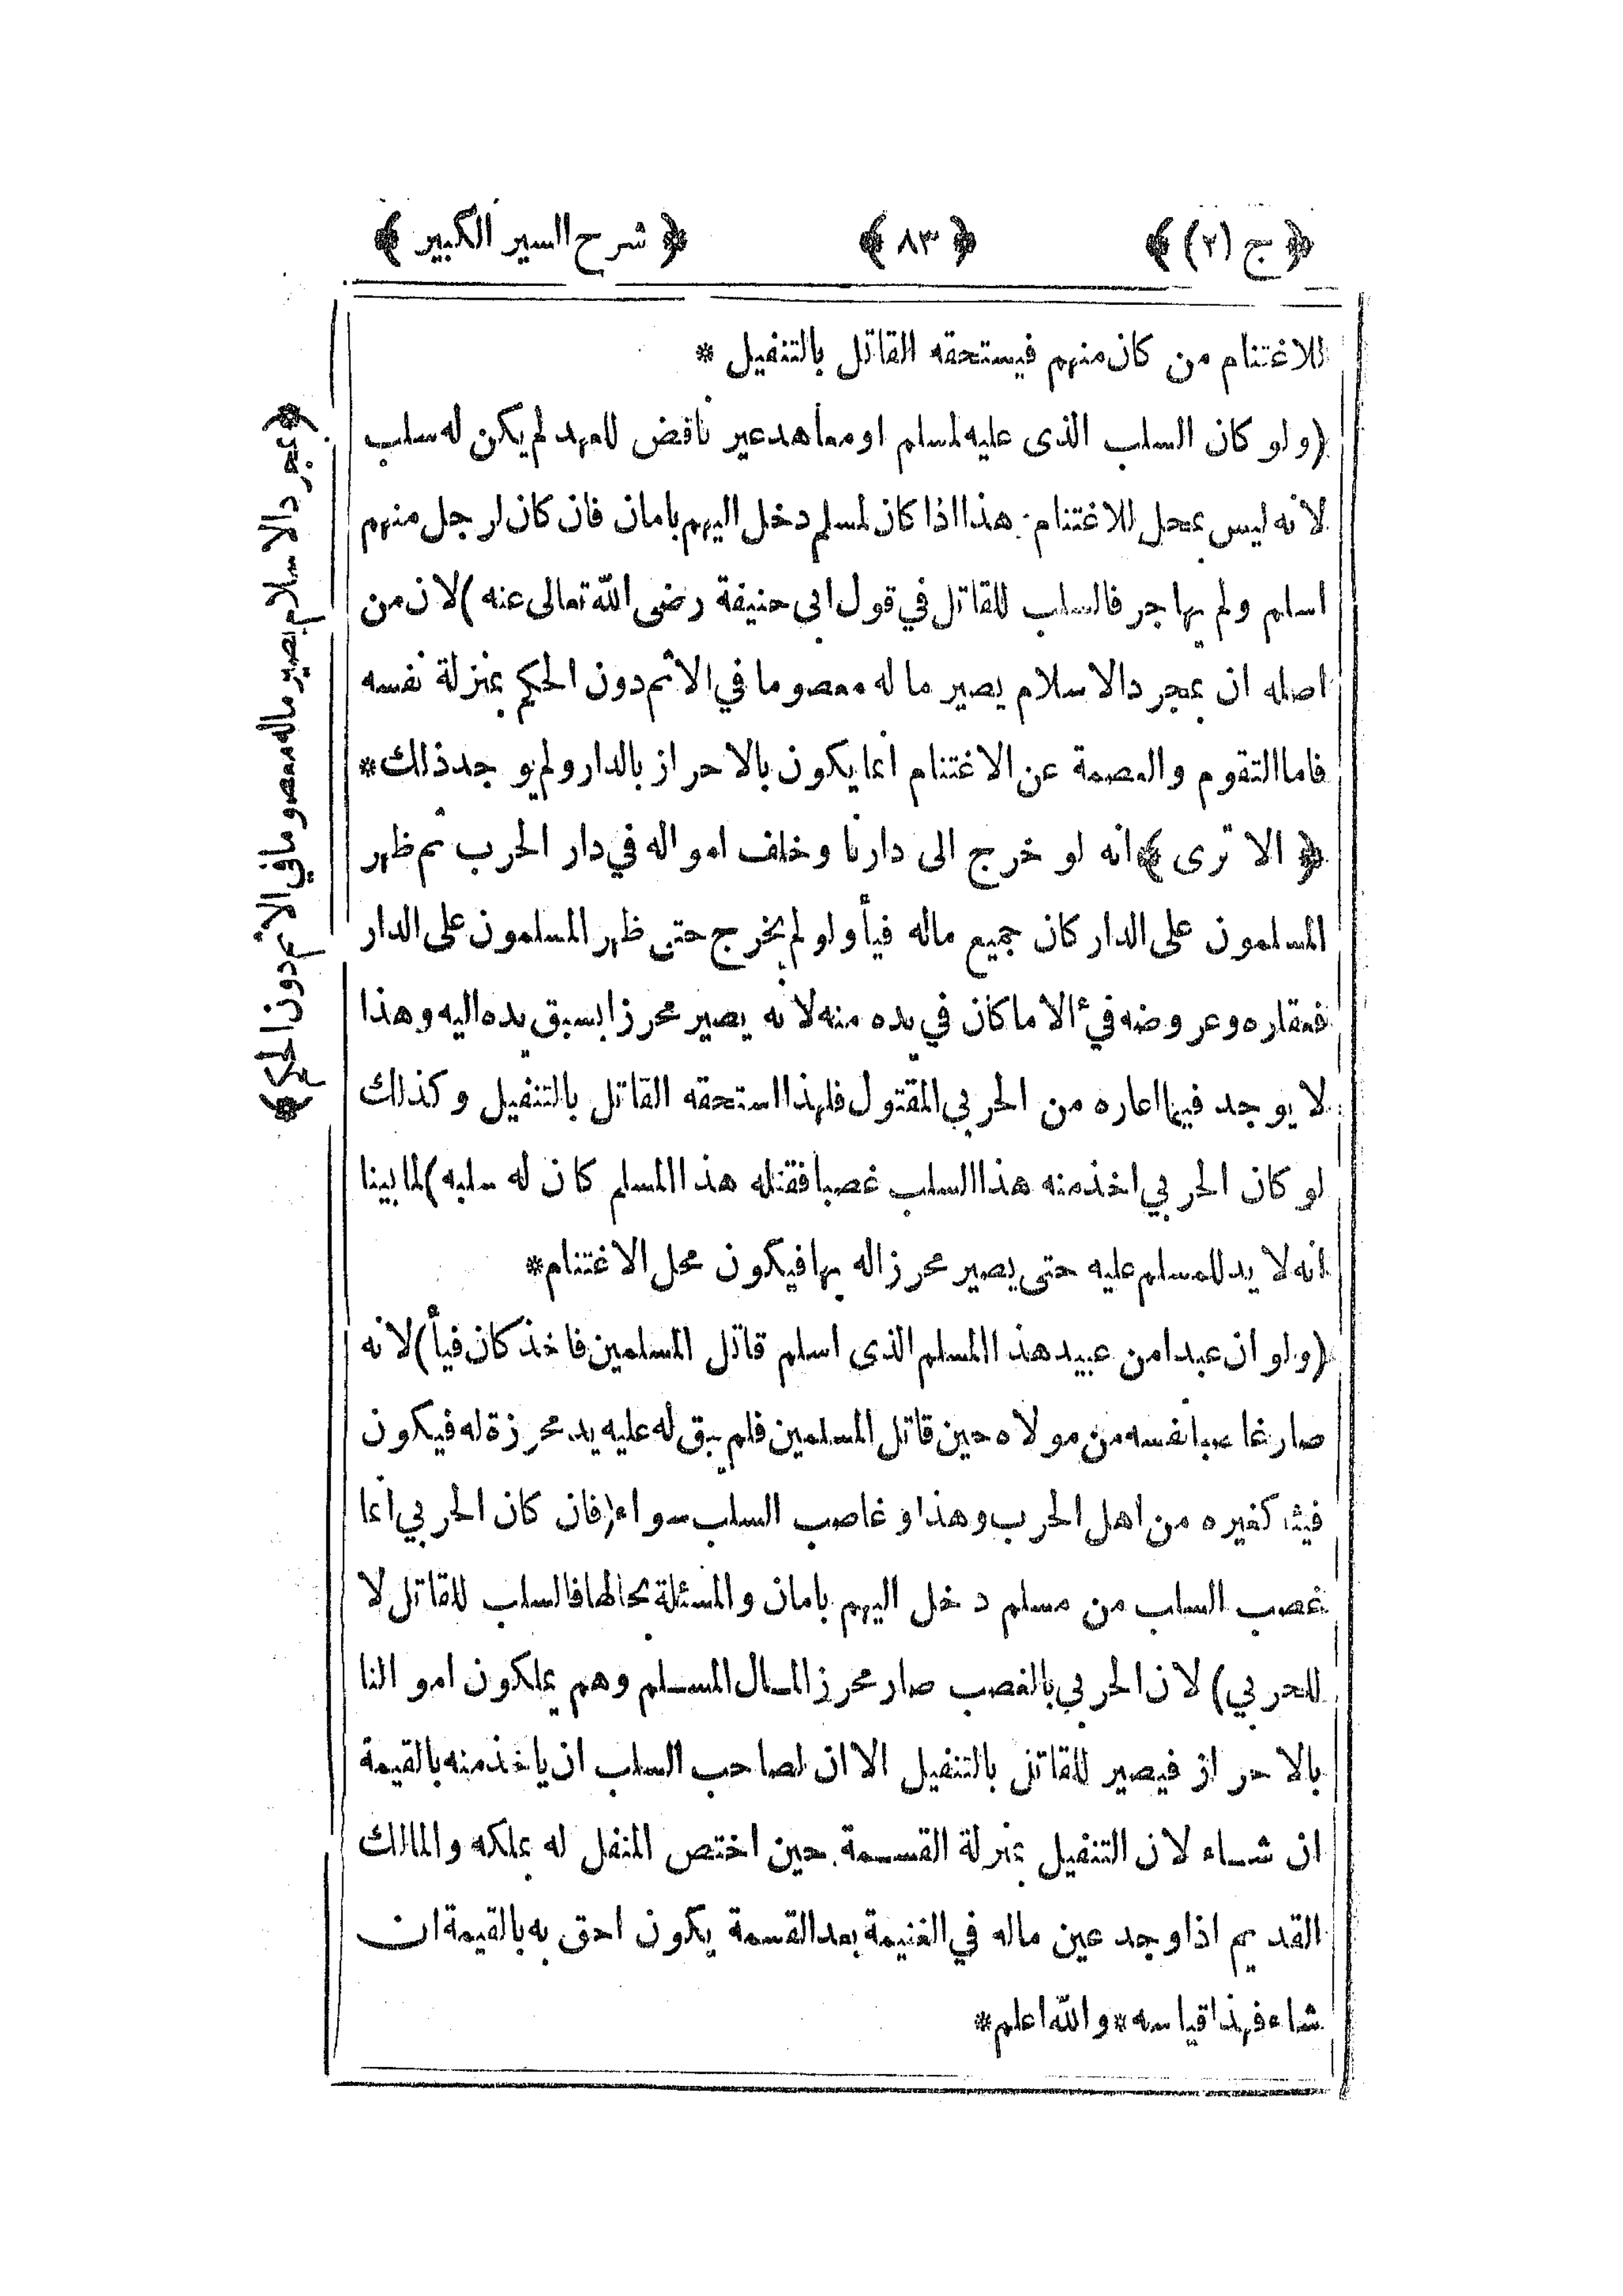 ﴿ ج (٢) ﴾ ﴿ ٨٣ ﴾ ﴿ شرح السير الكبير ﴾
للاغتنام من كان منهم فيستحقه القاتل بالتنفيل *
(ولو كان السلب الذى عليه لمسلم او معاهد غير ناقض للعهد لم يكن له سلب
لانه ليس بمحل للاغتنام. هذا اذا كان لمسلم دخل اليهم بامان فان كان لرجل منهم
اسلم ولم يهاجر فالسلب للقاتل في قول ابى حنيفة رضى الله تعالى عنه) لان من
اصله ان بمجرد الاسلام يصير ماله معصوما في الاثم دون الحكم بمنزلة نفسه
فاما التقوم والعصمة عن الاغتنام انما يكون بالاحراز بالدار ولم يوجد ذلك *
﴿ الا ترى ﴾ انه لو خرج الى دارنا وخلف امواله في دار الحرب ثم ظهر
المسلمون على الدار كان جميع ماله فيأ ولو لم يخرج حتى ظهر المسلمون على الدار
فعقاره وعروضه فئ الا ما كان في يده منه لانه يصير محرزا بسبق يده اليه وهذا
لا يوجد فيما اعاره من الحربي المقتول فلهذا استحقه القاتل بالتنفيل وكذلك
لو كان الحربي اخذ منه هذا السلب غصبا فقتله هذا المسلم كان له سلبه) لما بينا
انه لا يد للمسلم عليه حتى يصير محرزا له بها فيكون محل الاغتنام *
(ولو ان عبدا من عبيد هذا المسلم الذى اسلم قاتل المسلمين فاخذ كان فيأ) لانه
صار غاصبا نفسه من مولاه حين قاتل المسلمين فلم يبق له عليه يد محرزة له فيكون
فيئا كغيره من اهل الحرب وهذا وغاصب السلب سواء (فان كان الحربي انما
غصب السلب من مسلم دخل اليهم بامان والمسئلة بحالها فالسلب للقاتل لا
للحربي) لان الحربي بالغصب صار محرزا لمال المسلم وهم يملكون اموالنا
بالاحراز فيصير للقاتل بالتنفيل الا ان لصاحب السلب ان ياخذ منه بالقيمة
ان شاء لان التنفيل بمنزلة القسمة حين اختص المنفل له بملكه والمالك
القديم اذا وجد عين ماله في الغنيمة بعد القسمة يكون احق به بالقيمة ان
شاء فهذا قياسه * والله اعلم *
﴿ بمجرد الاسلام يصير ماله معصوما في الاثم دون الحكم ﴾